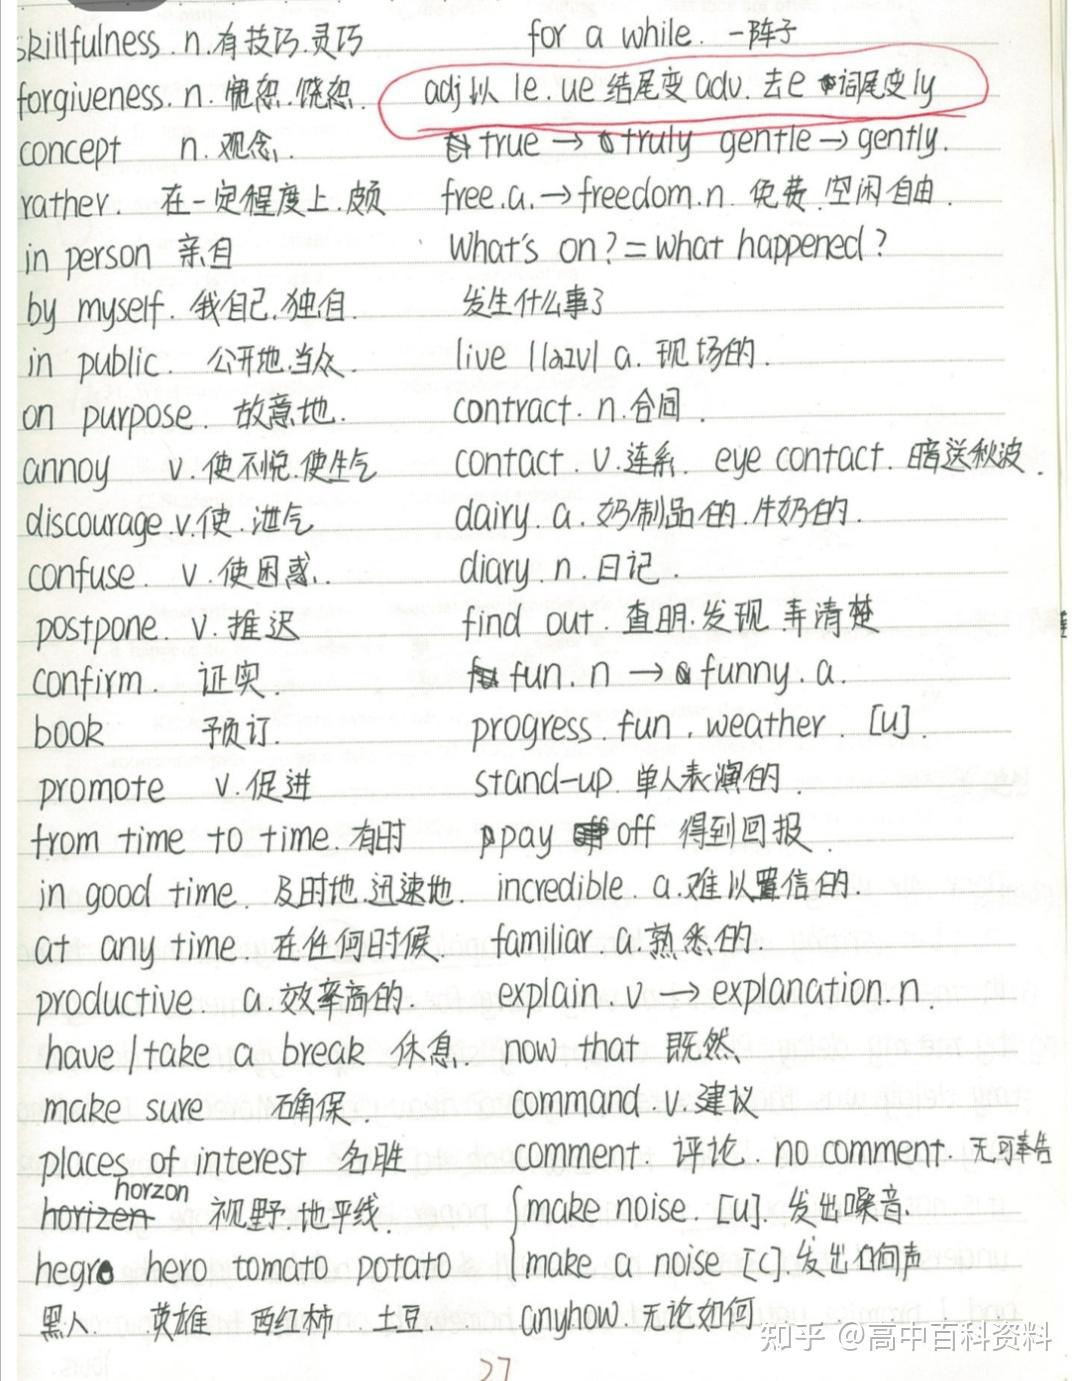 skillfulness. n. 有技巧.灵巧
forgiveness. n. 宽恕.饶恕.
concept n. 观念.
rather. 在一定程度上.颇
in person 亲自
by myself. 我自己.独自.
in public. 公开地.当众.
on purpose. 故意地.
annoy v. 使不悦.使生气
discourage.v.使.泄气
confuse. v. 使困惑.
postpone. v. 推迟
confirm. 证实.
book 预订.
promote v. 促进
from time to time. 有时
in good time. 及时地.迅速地.
at any time. 在任何时候.
productive. a. 效率高的.
have/take a break 休息.
make sure 确保.
places of interest 名胜
horzon
horizen 视野.地平线.
hegro hero tomato potato
黑人. 英雄 西红柿. 土豆.
for a while. 一阵子
adj以 le. ue 结尾变 adv. 去e 词尾变ly
true → truly gentle → gently.
free.a. → freedom.n. 免费.空闲 自由.
What's on? = what happened?
发生什么事了
live |laɪv| a. 现场的.
contract. n. 合同.
contact. v. 连系. eye contact. 暗送秋波.
dairy. a. 奶制品的.牛奶的.
diary. n. 日记.
find out. 查明.发现 弄清楚
fun. n → funny. a.
progress. fun. weather. [u].
stand-up. 单人表演的.
pay off 得到回报.
incredible. a. 难以置信的.
familiar. a. 熟悉的.
explain. v → explanation. n.
now that 既然.
command. v. 建议
comment. 评论. no comment. 无可奉告
make noise. [u]. 发出噪音.
make a noise [c]. 发出响声
anyhow. 无论如何
知乎 @高中百科资料
27